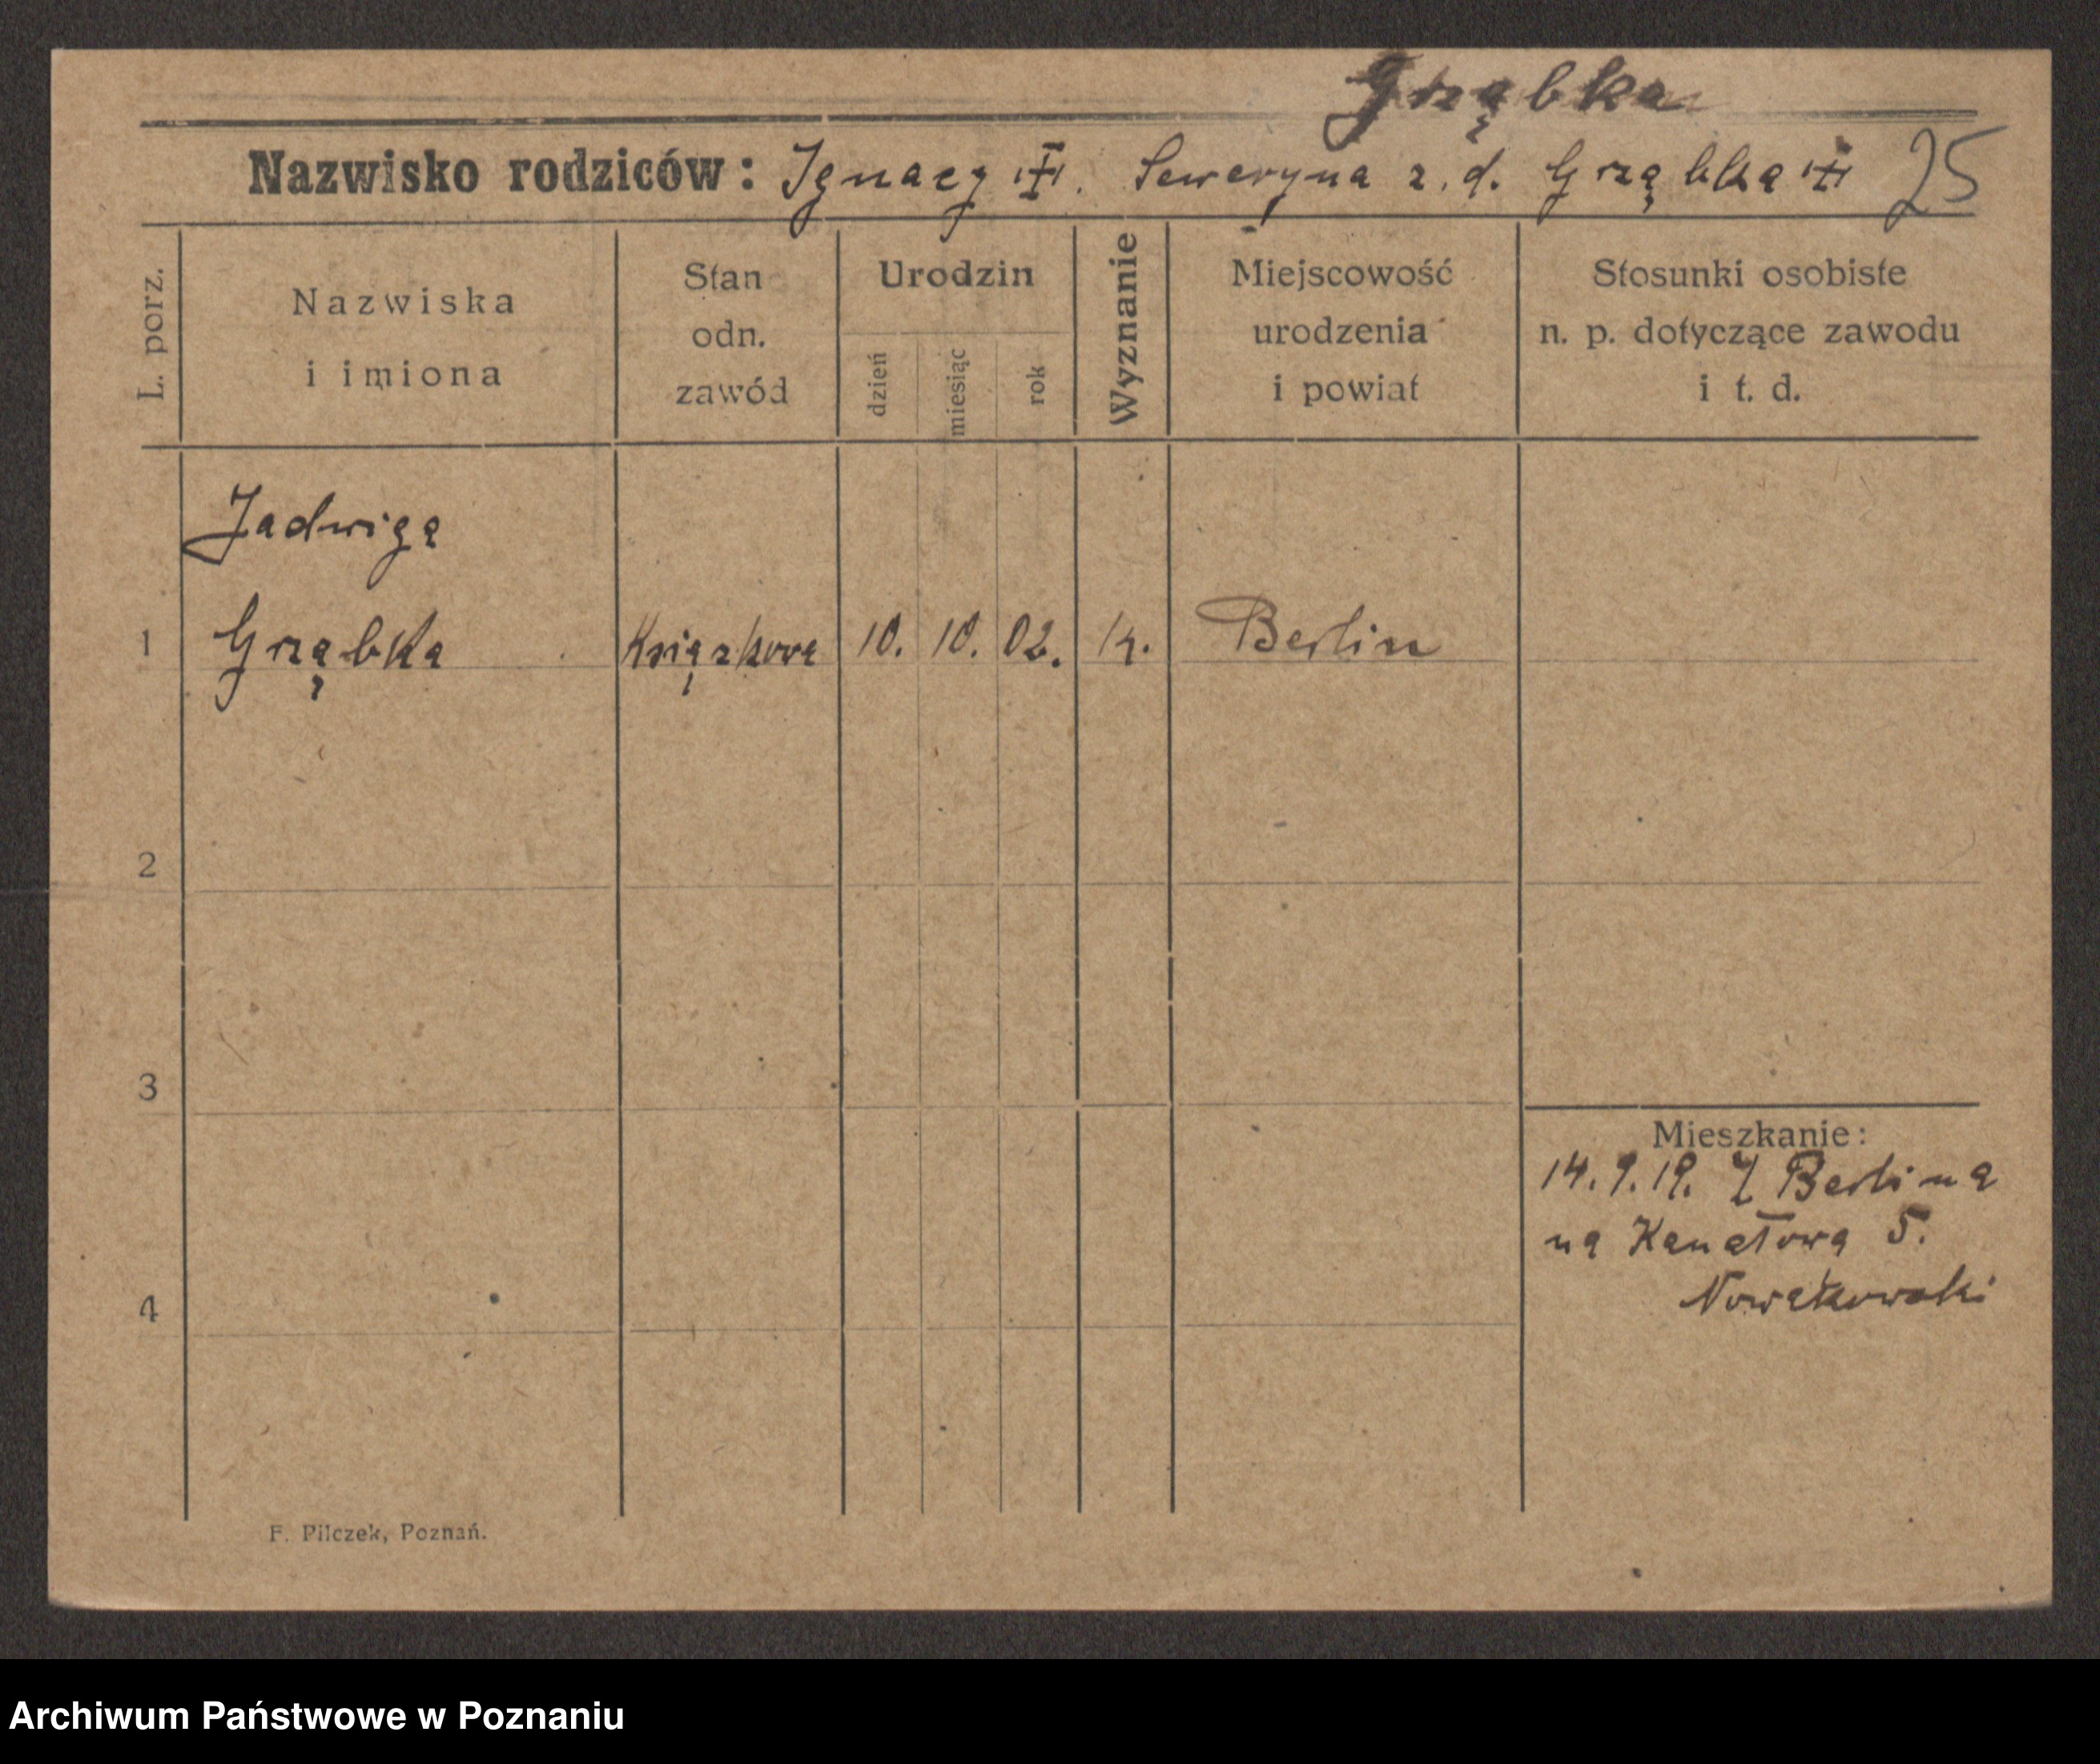 Grząbka
Nazwisko rodziców: Ignacy Seweryna z. d. Grząbka 25
L. porz.
Nazwiska
i imiona
Stan
odn.
zawód
Urodzin
dzień
miesiąc
rok
Wyznanie
Miejscowość
urodzenia
i powiat
Stosunki osobiste
n. p. dotyczące zawodu
i t. d.
Jadwiga
1 Grząbka Książkowa 10. 10. 02. k. Berlin
2
3
Mieszkanie:
14. 9. 19. Z Berlina
na Kanałowa 5.
Nowakowski
4
F. Pilczek, Poznań.
Archiwum Państwowe w Poznaniu